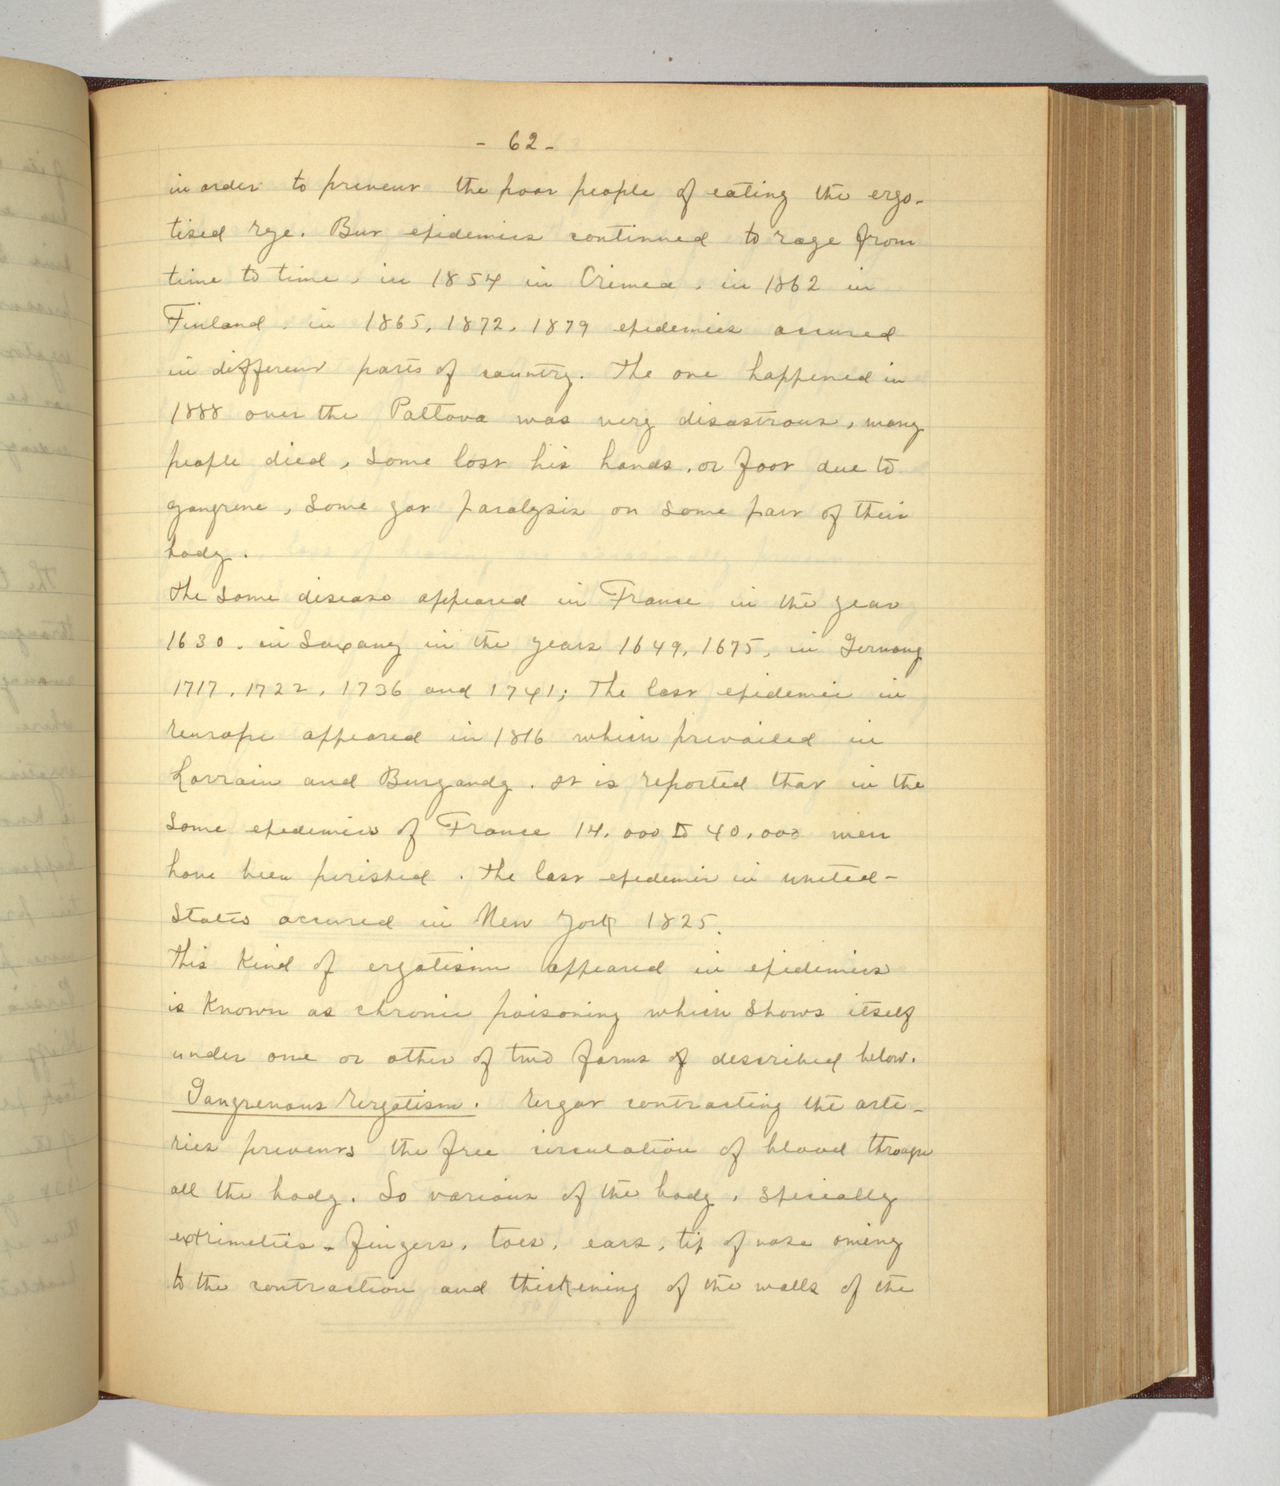 - 62 -
in order to prevent the poor people of eating the ergo-
tised rye. But epidemics continued to rage from
time to time, in 1854 in Crimea, in 1862 in
Finland, in 1865, 1872, 1879 epidemics occured
in different parts of country. The one happened in
1888 over the Paltova was very disastrous, many
people died, some lost his hands, or foot due to
gangrene, some got paralysis on some part of their
body.
The same disease appeared in France in the year
1630, in Saxany in the years 1649, 1675, in Germany
1717, 1722, 1736 and 1741; The last epidemic in
Europe appeared in 1816 which prevailed in
Lorrain and Burgandy. It is reported that in the
some epidemics of France 14,000 to 40,000 men
have been perished. The last epidemic in united-
States occured in New York 1825.
This kind of ergotism appeared in epidemics
is known as chronic poisoning which shows itself
under one or other of two forms of described below.
Gangrenous Ergotism. Ergot contracting the arte-
ries prevents the free circulation of blood through
all the body. So various of the body, specially
extrimeties - fingers, toes, ears, tip of nose owing
to the contraction and thickening of the walls of the